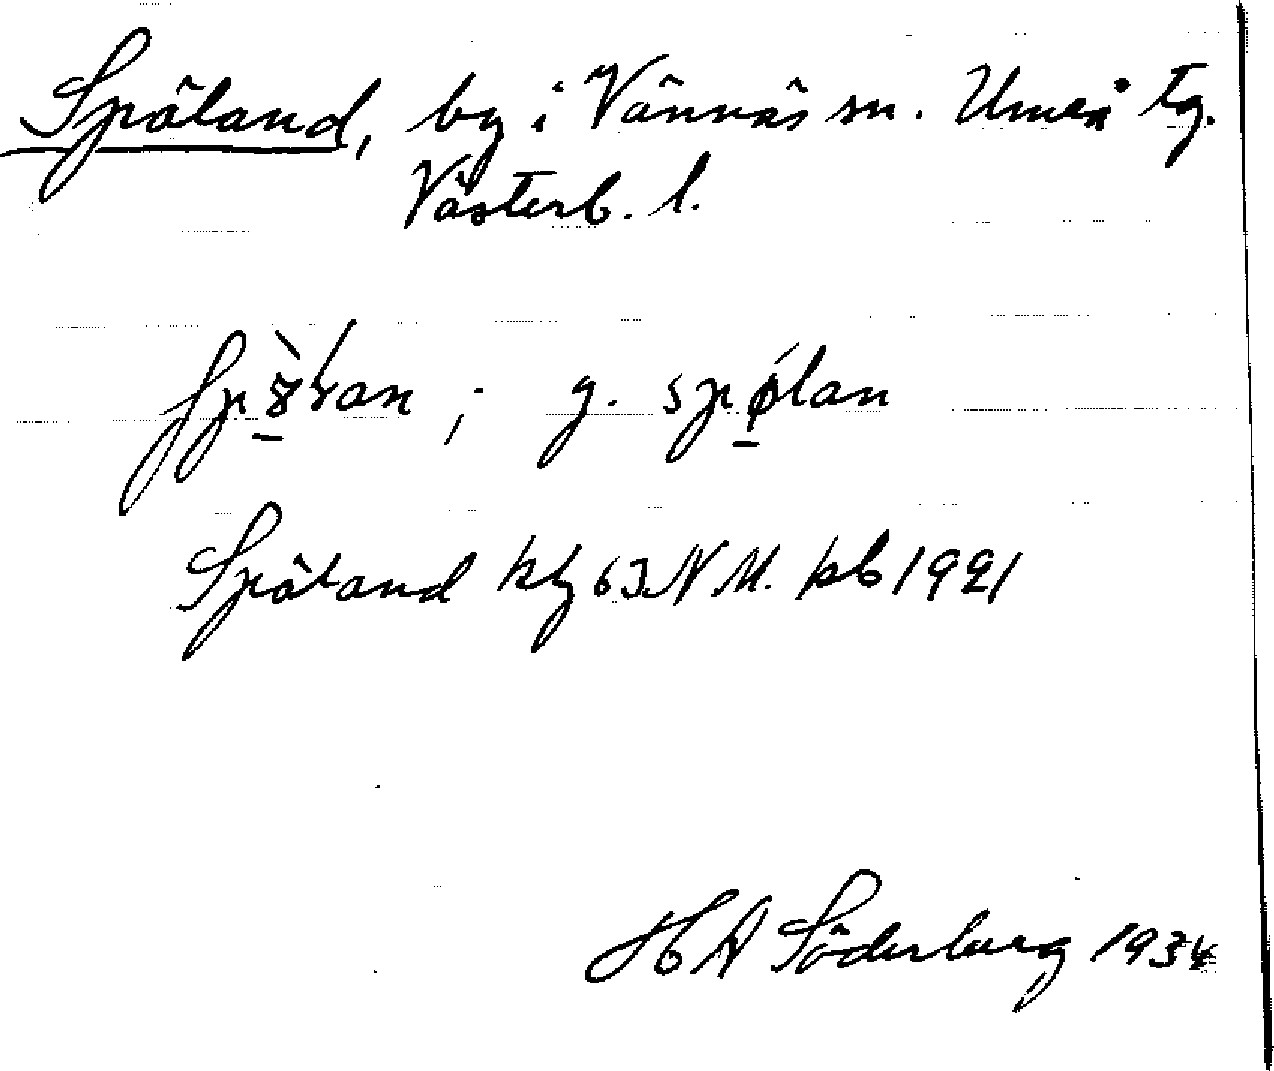 Spöland, by i Vännäs sn. Umeå tg.
Västerb. l.
g. spølan
Spöland kbl 63 NV M. kb 1921
H A Söderberg 1934